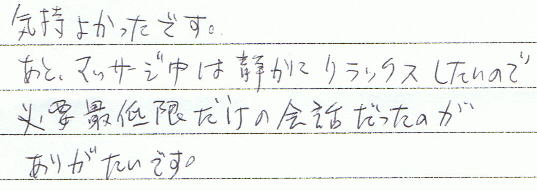 気持よかったです。
あと、マッサージ中は静かにリラックスしたいので
必要最低限だけの会話だったのが
ありがたいです。